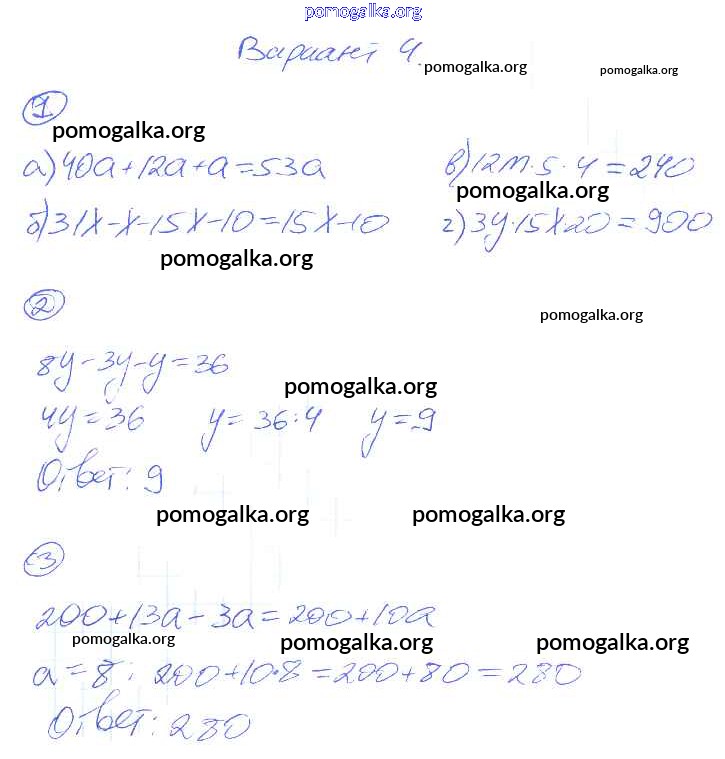 pomogalka.org
Вариант 4.
pomogalka.org pomogalka.org
1
pomogalka.org
а) 40a+12a+a=53a в) 12m·5·4=240
pomogalka.org
б) 31x-x-15x-10=15x-10 г) 3y·15x20=900
pomogalka.org
2
pomogalka.org
8y-3y-y=36
pomogalka.org
4y=36 y=36:4 y=9
Ответ: 9
pomogalka.org pomogalka.org
3
200+13a-3a=200+10a
pomogalka.org pomogalka.org pomogalka.org
a=8; 200+10·8=200+80=280
Ответ: 280